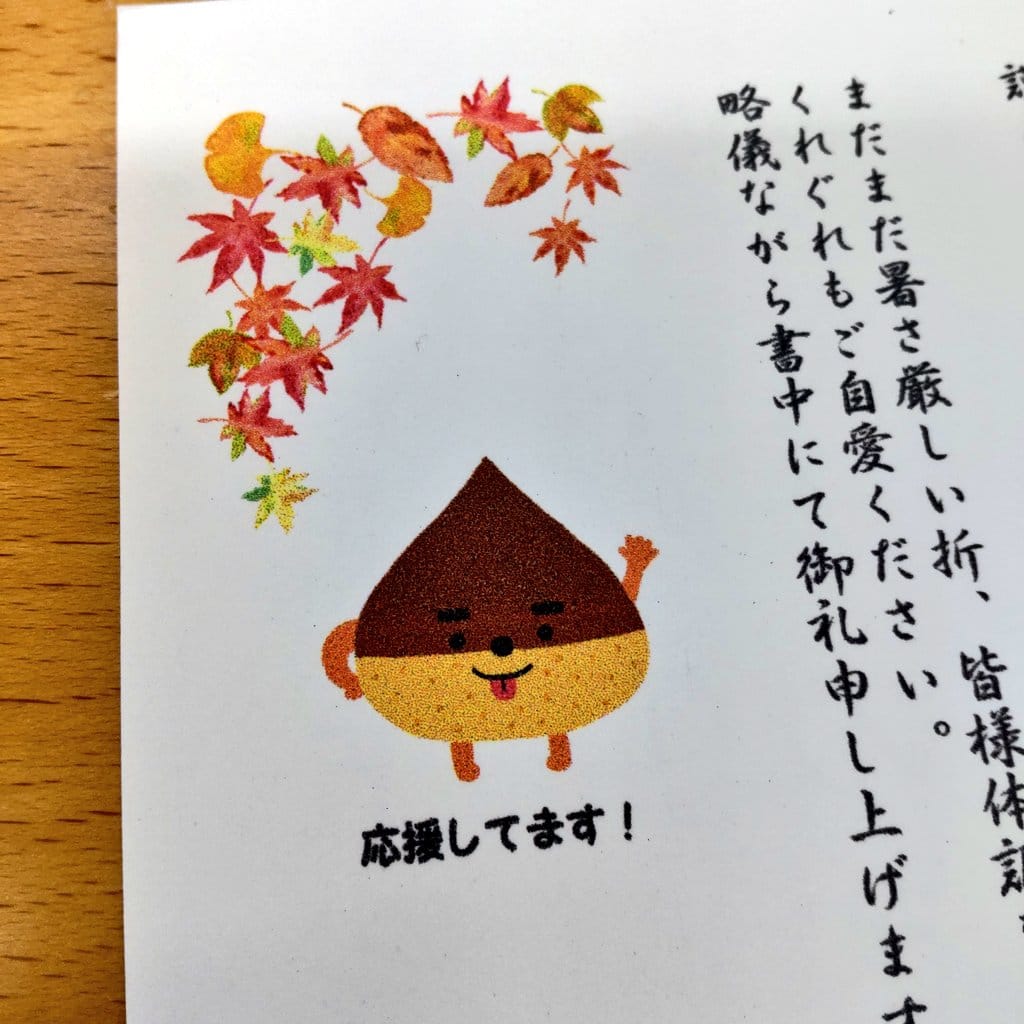 まだまだ暑さ厳しい折、皆様体調
くれぐれもご自愛ください。
略儀ながら書中にて御礼申し上げます
応援してます！